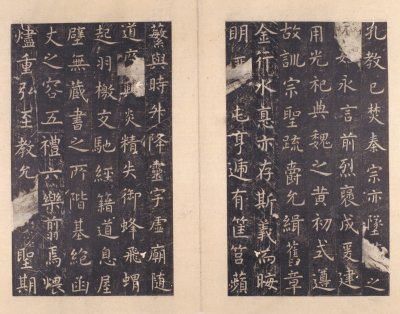 孔教已焚秦宗亦墜之
永言前烈褒成爰建
用光祀典魏之黃初式遵
故訓宗聖疏爵允緝舊章
金行水悳亦存斯義而晦
明屯亨遞有筐筥蘋
蘩與時升降靈宇虛廟隨
道炎精失御蜂飛蝟
起羽檄交馳經籍道息屋
壁無藏書之所階基絕函
丈之容五禮六樂翦焉煨
燼重弘至教允聖期